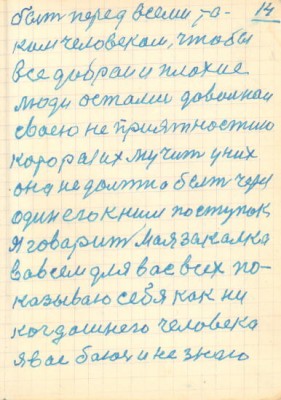 14
быт перед всеми, та-
ким человеком, чтобы
все добраи и плохие
люди остались довольнаи
своею не приятностию
котораги их мучит у них
она не должна быт через
один его к ним поступок
я говарит Мая закалка
вовсем для вас всех по-
казываю себя как ни
когдашнего человека
я вас баюс и не знаю